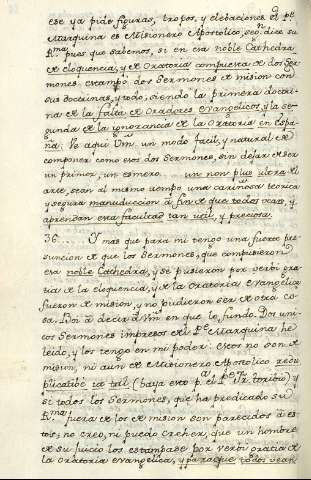 ese ya pido figuras, tropos, y elebaciones el Pe.
Marquina es Misionero Apostolico, segn. dice su
Rma. pues que sabemos, si en esa noble Cathedra
de eloquencia, y de Oratoria compuesta de dos Ser-
mones. estampó dos Sermones de mision con
sus doctrinas, y todo, siendo la primera doctri-
na de la falta de Oradores Evangelicos, y la se-
gunda de la ignorancia de la Oratoria en Espa-
ña. Ve aqui Vm. un modo facil, y natural de
componer como esos dos Sermones, sin dejar de ser
un primor, un esmero, un non plus ultra del
arte, sean al mismo tiempo una cariñosa teorica
y segura manuduccion à fin de que todos vean, y
aprendan esta facultad tan util, y preciosa.
36.... Y mas que para mi tengo una fuerte pre-
suncion de que los Sermones, que compusieron
esa noble Cathedra, y se pusieron por verbi gra-
tia de la eloquencia, y de la oratoria evangelica
fueron de mision, y no pudieron ser de otra co-
sa. Voi à decir à Vm. en que lo fundo. Dos uni-
cos Sermones impresos del Pe. Marquina he
leido, y los tengo en mi poder. Estos no son de
mision, ni aun de Misionero Apostolico
(baya esta p.r el Pe. Dr. toribio) y
si todos los Sermones, que ha predicado su
Rma. fuera de los de mision son parecidos à es-
tos; no creo, ni puedo creher, que un hombre
de su juicio los estampase por verbi gratia de
la oratoria evangelica, y para que todos vean,